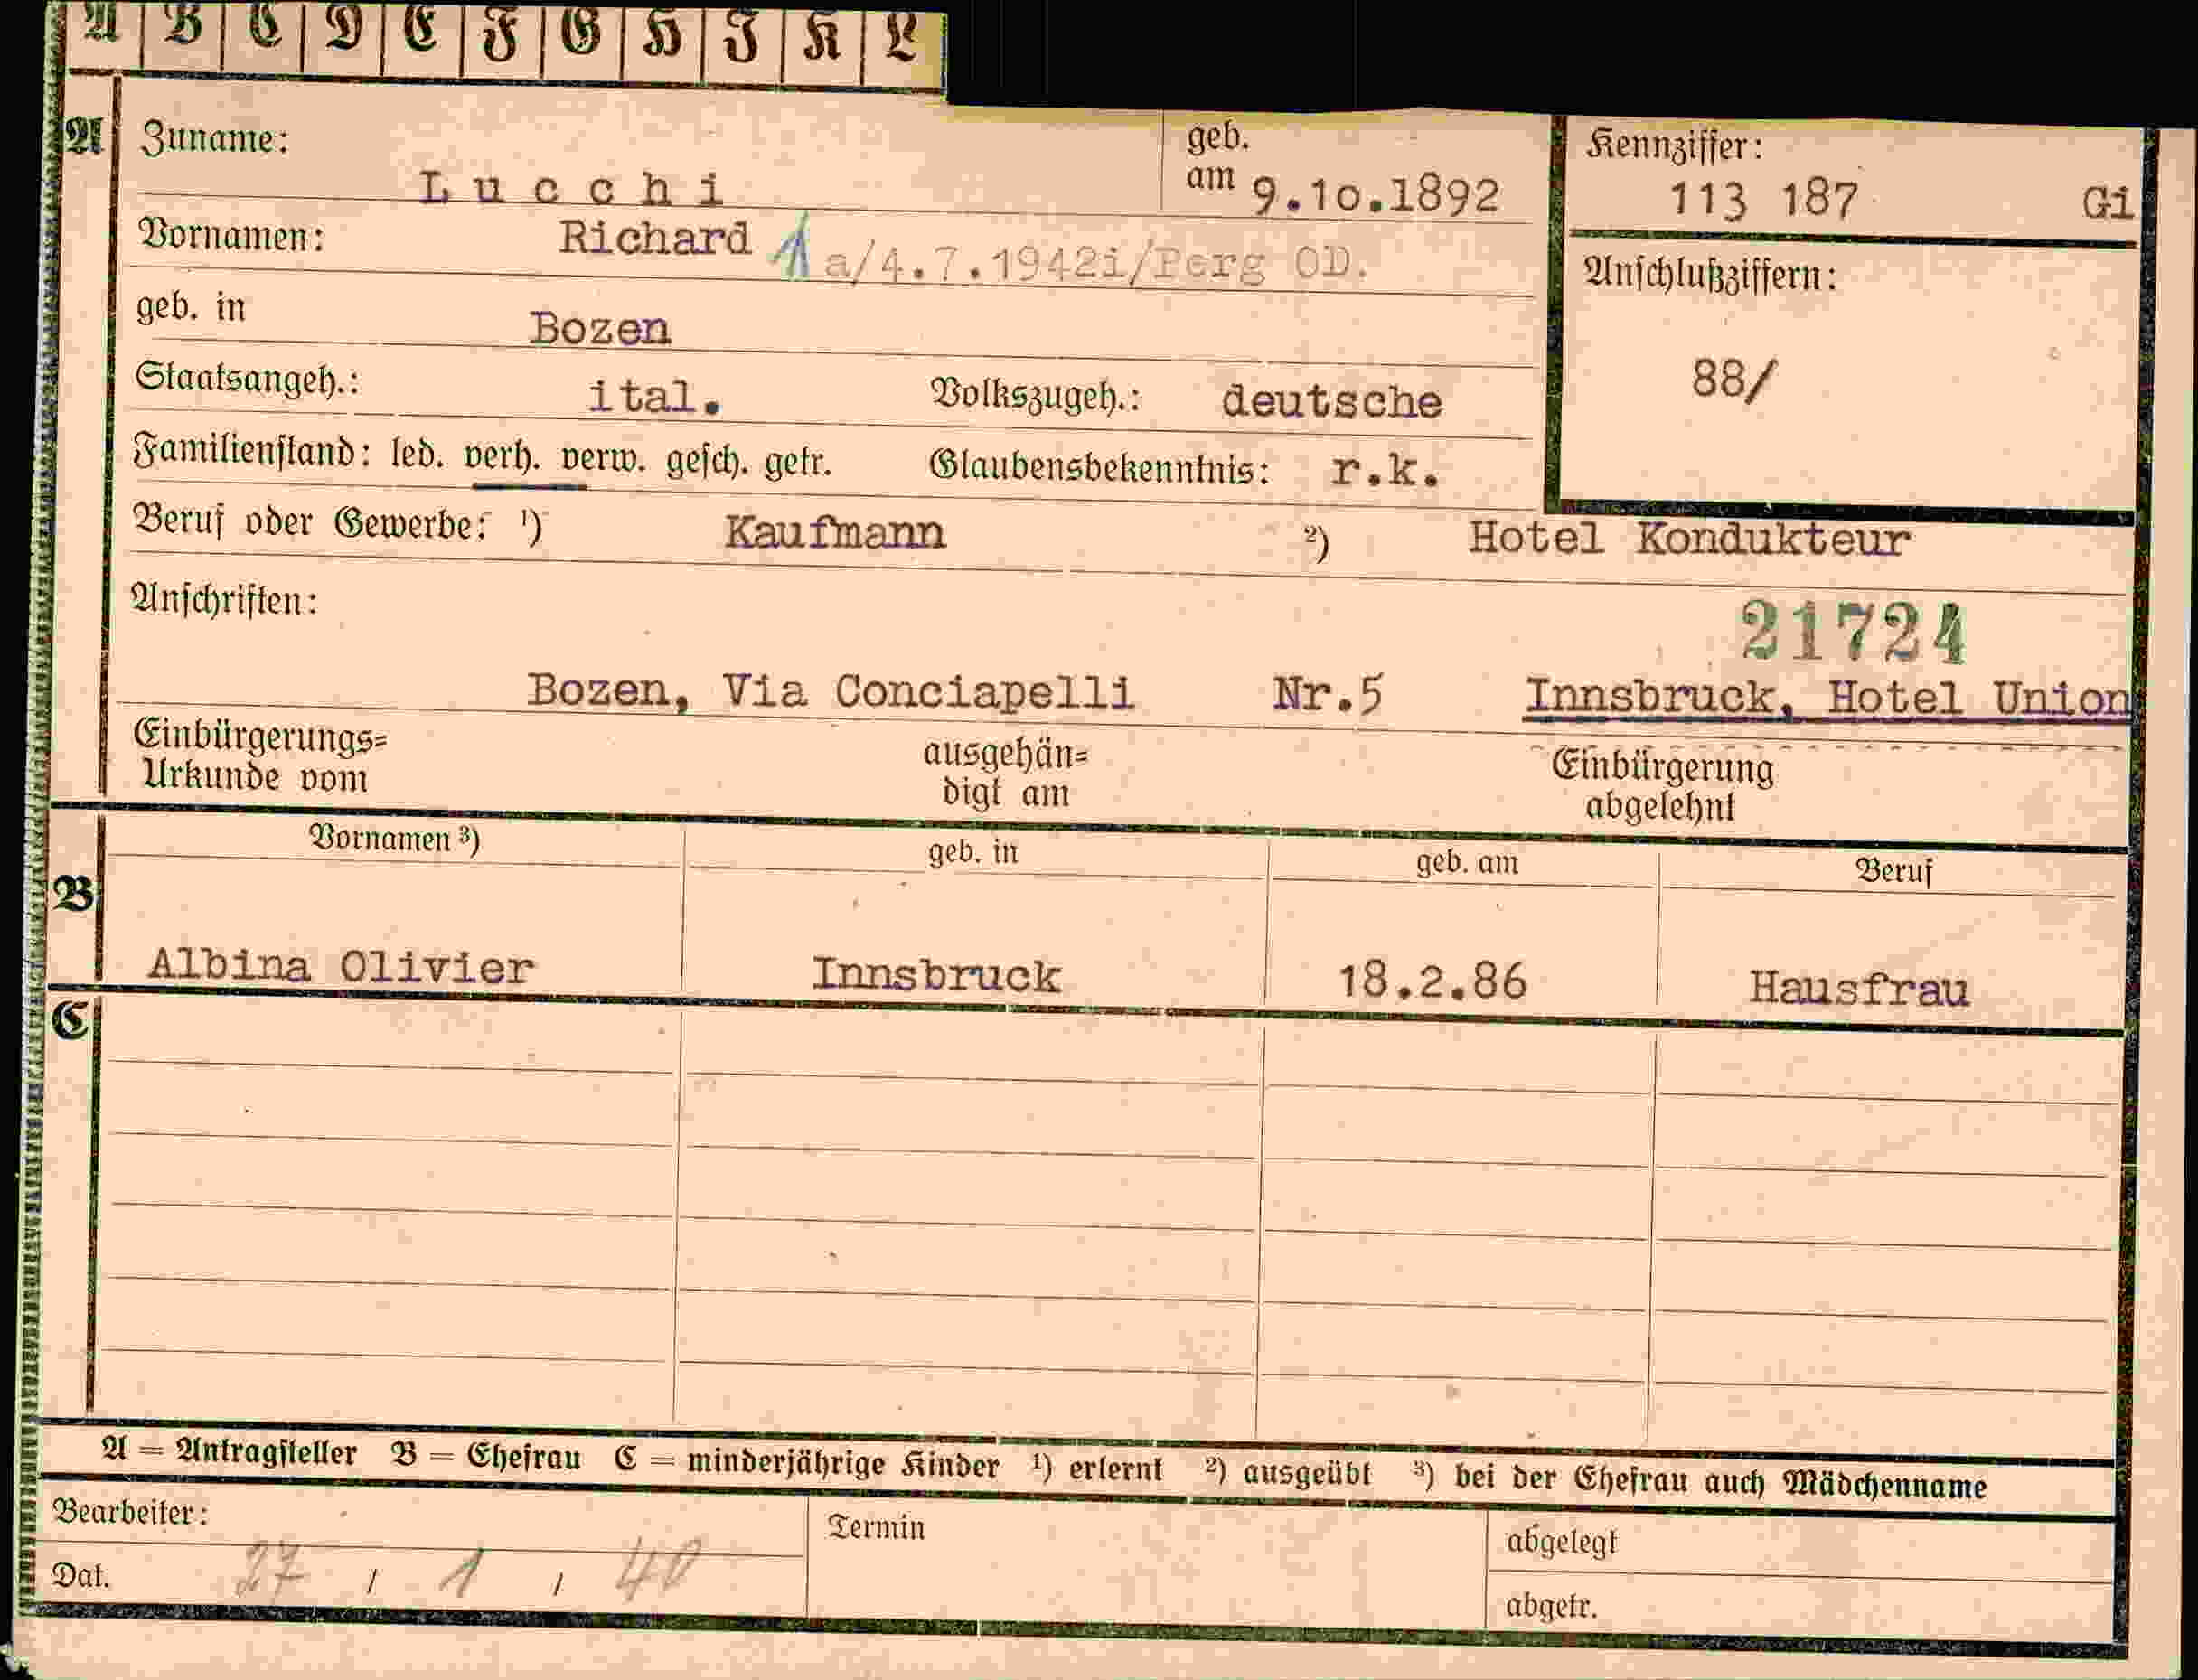 A B C D E F G H I K L
A Zuname: Lucchi geb. am 9.10.1892
Kennziffer: 113 187 Gi
Vornamen: Richard 1a/4.7.1942i/Perg OD.
Anschlußziffern: 88/
geb. in Bozen
Staatsangeh.: ital. Volkszugeh.: deutsche
Familienstand: led. verh. verw. gesch. getr. Glaubensbekenntnis: r.k.
Beruf oder Gewerbe: ¹) Kaufmann ²) Hotel Kondukteur
Anschriften: 21724
Bozen, Via Conciapelli Nr.5 Innsbruck, Hotel Union
Einbürgerungs=
Urkunde vom
ausgehän=
digt am
Einbürgerung
abgelehnt
Vornamen ³) geb. in geb. am Beruf
B
Albina Olivier Innsbruck 18.2.86 Hausfrau
C
A = Antragsteller B = Ehefrau C = minderjährige Kinder ¹) erlernt ²) ausgeübt ³) bei der Ehefrau auch Mädchenname
Bearbeiter:
Dat. 27 / 1 / 40
Termin
abgelegt
abgetr.